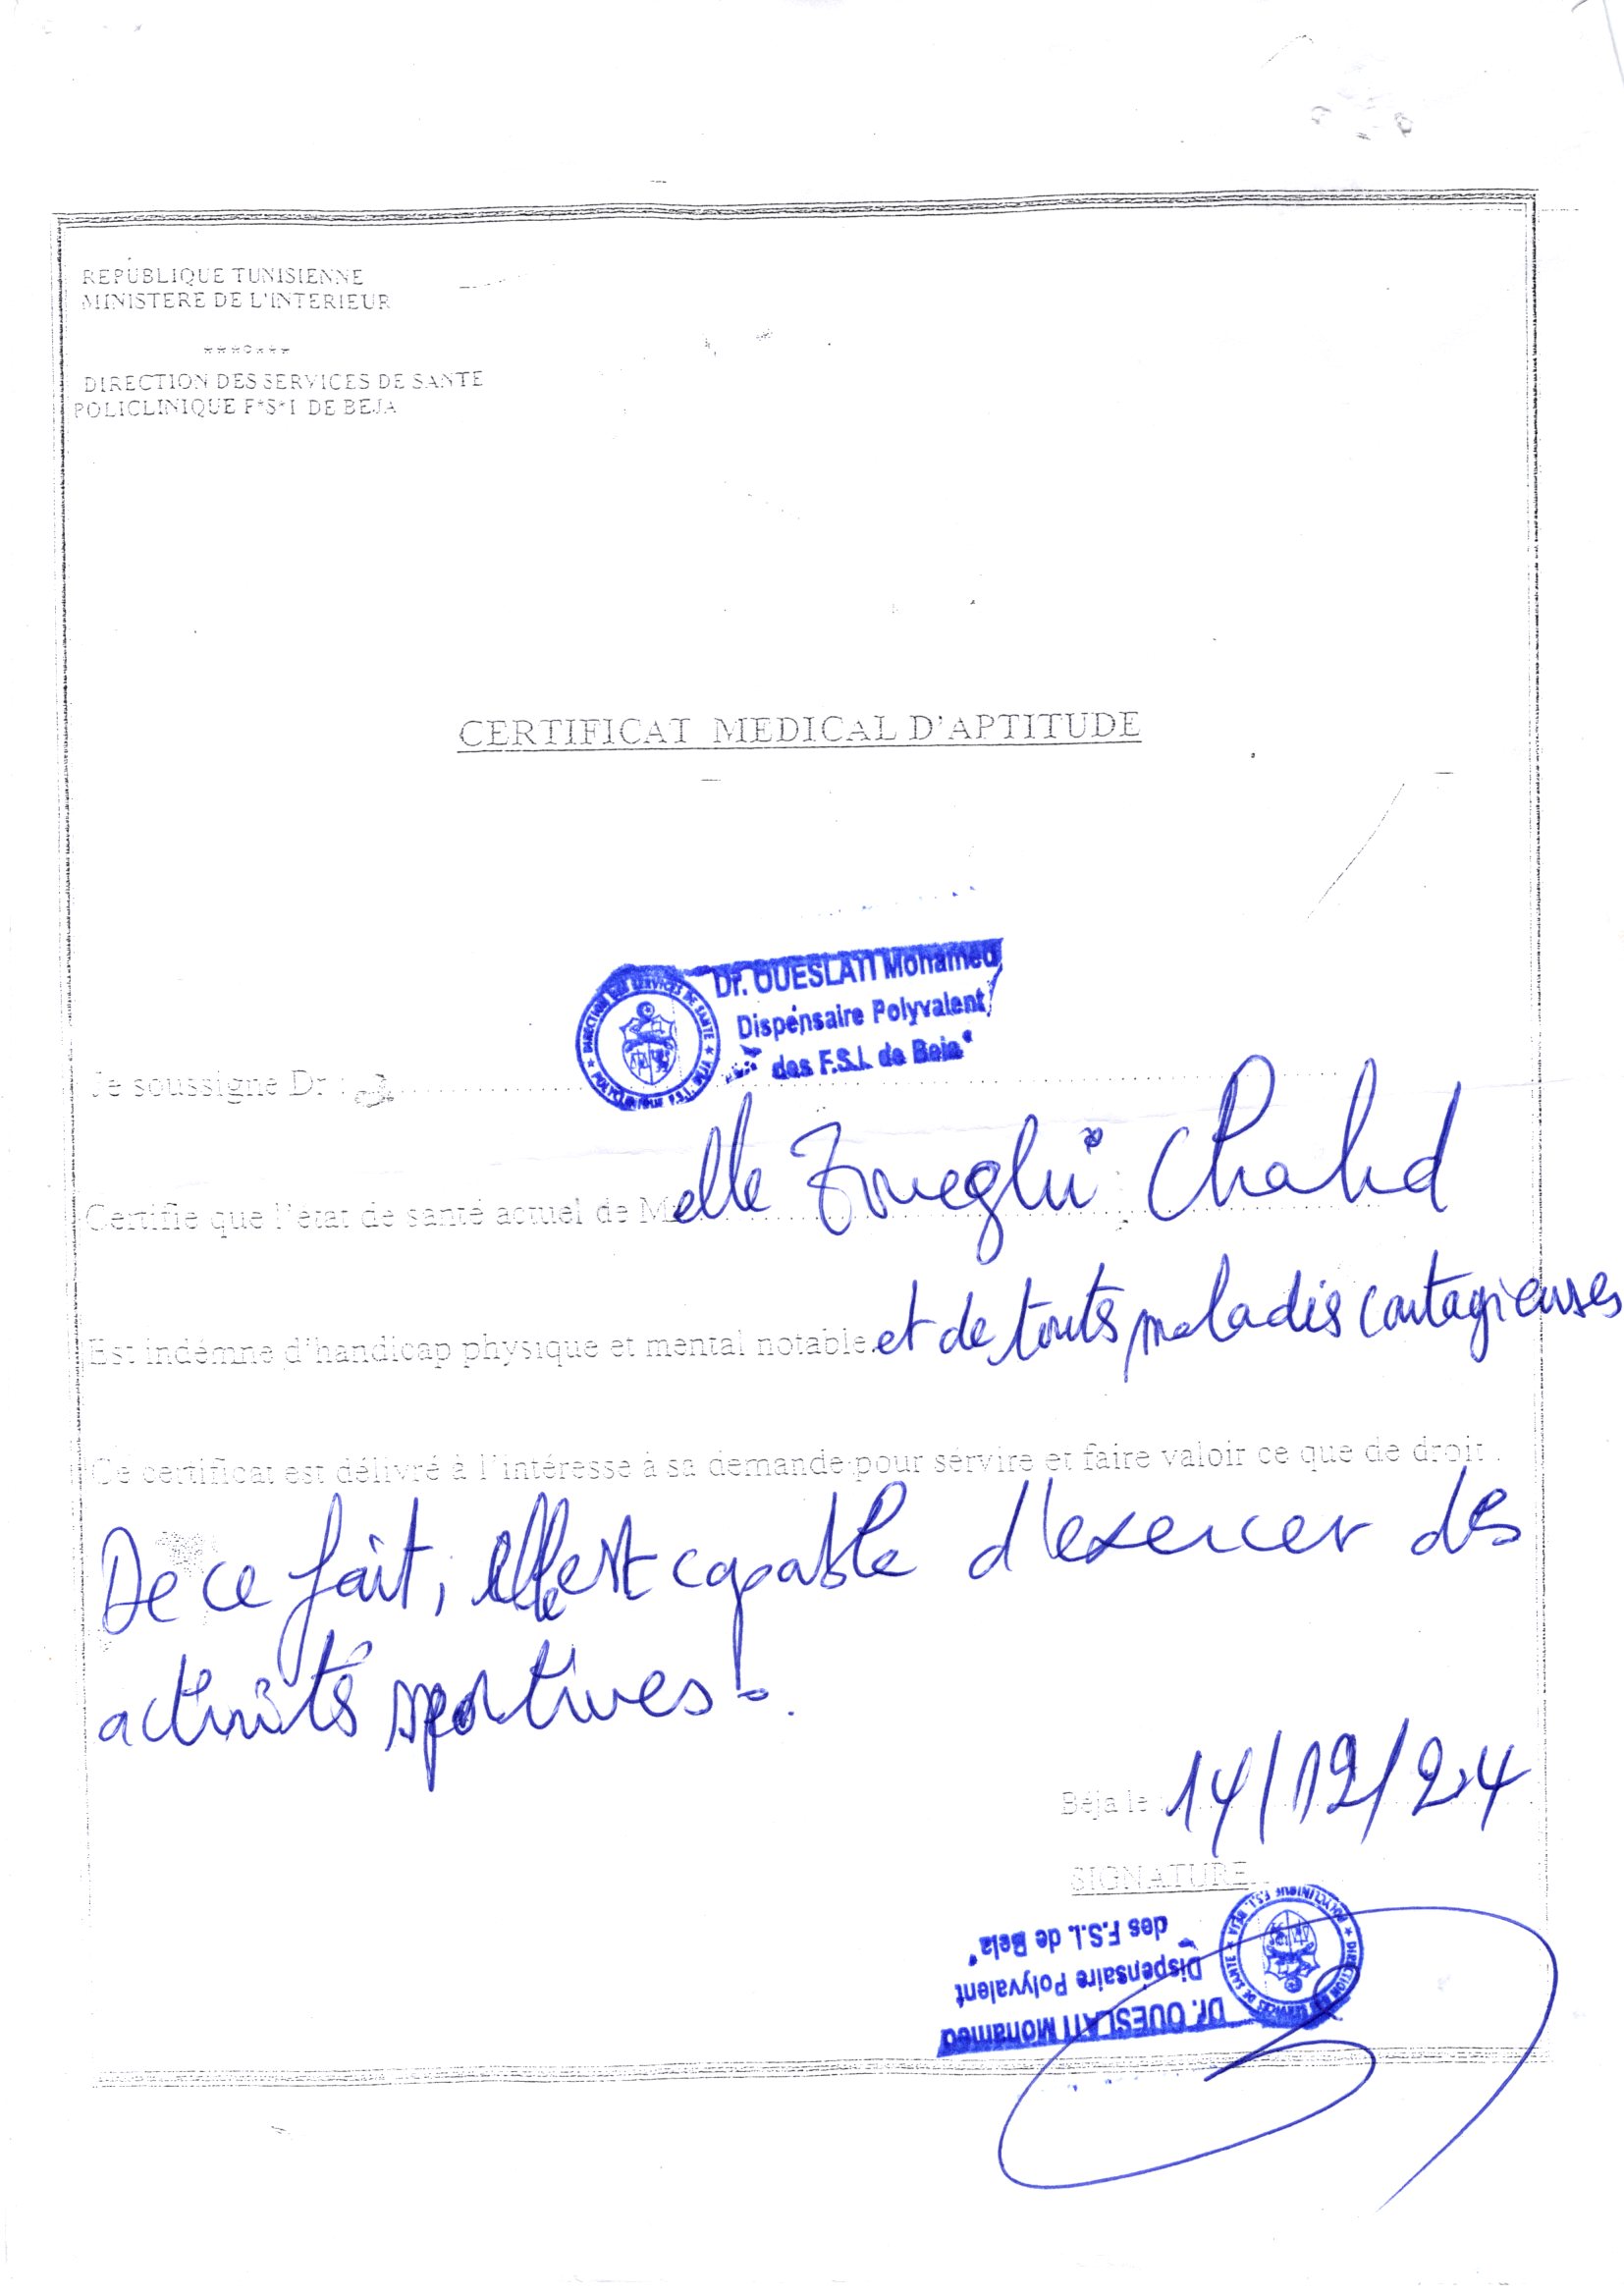 REPUBLIQUE TUNISIENNE
MINISTERE DE L'INTERIEUR
***o***
DIRECTION DES SERVICES DE SANTE
POLICLINIQUE F*S*I DE BEJA
CERTIFICAT MEDICAL D'APTITUDE
Dr. OUESLATI Mohamed
Dispensaire Polyvalent
des F.S.I. de Beja"
DIRECTION DES SERVICES DE SANTE
Je soussigne Dr :
Certifie que l'etat de santé actuel de Melle Chahd
Est indémne d'handicap physique et mental notable. et de touts maladis contagieuses
Ce certificat est délivré à l'intéresse à sa demande pour servire et faire valoir ce que de droit .
De ce fait, elle est capable d'exercer des
activités sportives.
Béja le 14/12/24
SIGNATURE
DIRECTION DES SERVICES DE SANTE * POLYCLINIQUE F.S.I. BEJA
Dr. OUESLATI Mohamed
Dispensaire Polyvalent
des F.S.I. de Beja"